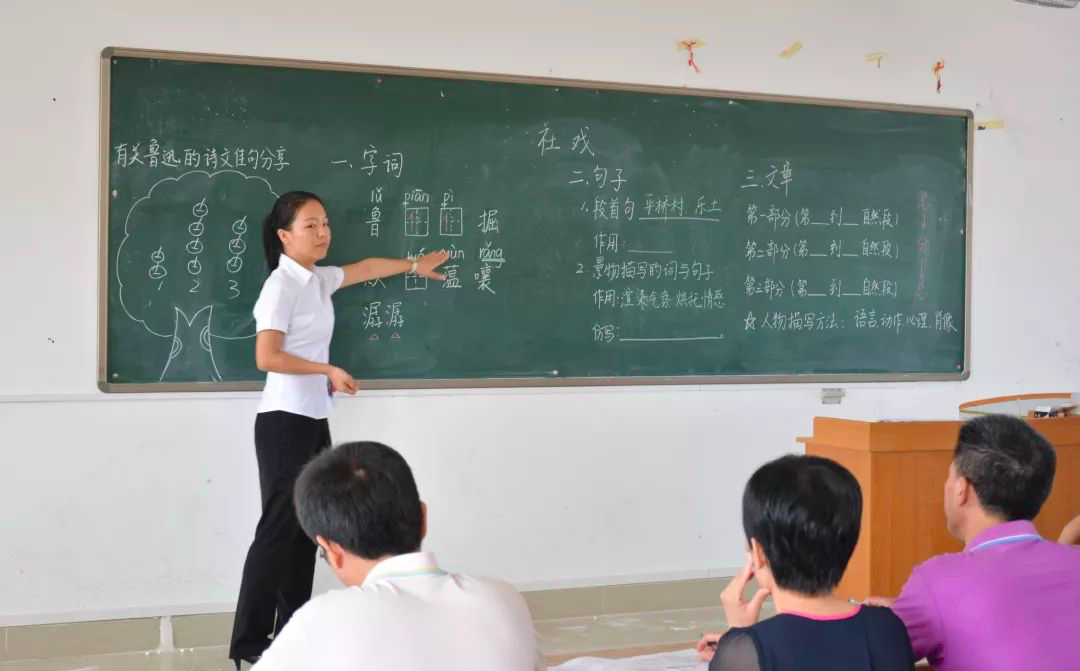 社戏
有关鲁迅的诗文佳句分享
1 2 3
一、字词
lǔ piān pì
鲁 掘
yùn rǎng
蕴 嚷
潺潺
二、句子
1、段首句 平桥村 乐土
作用：
2、景物描写的词与句子
作用：渲染气氛 烘托情感
仿写：。
三、文章
第一部分(第__到__自然段)
第二部分(第__到__自然段)
第三部分(第__到__自然段)
☆人物描写方法：语言、动作、心理、肖像